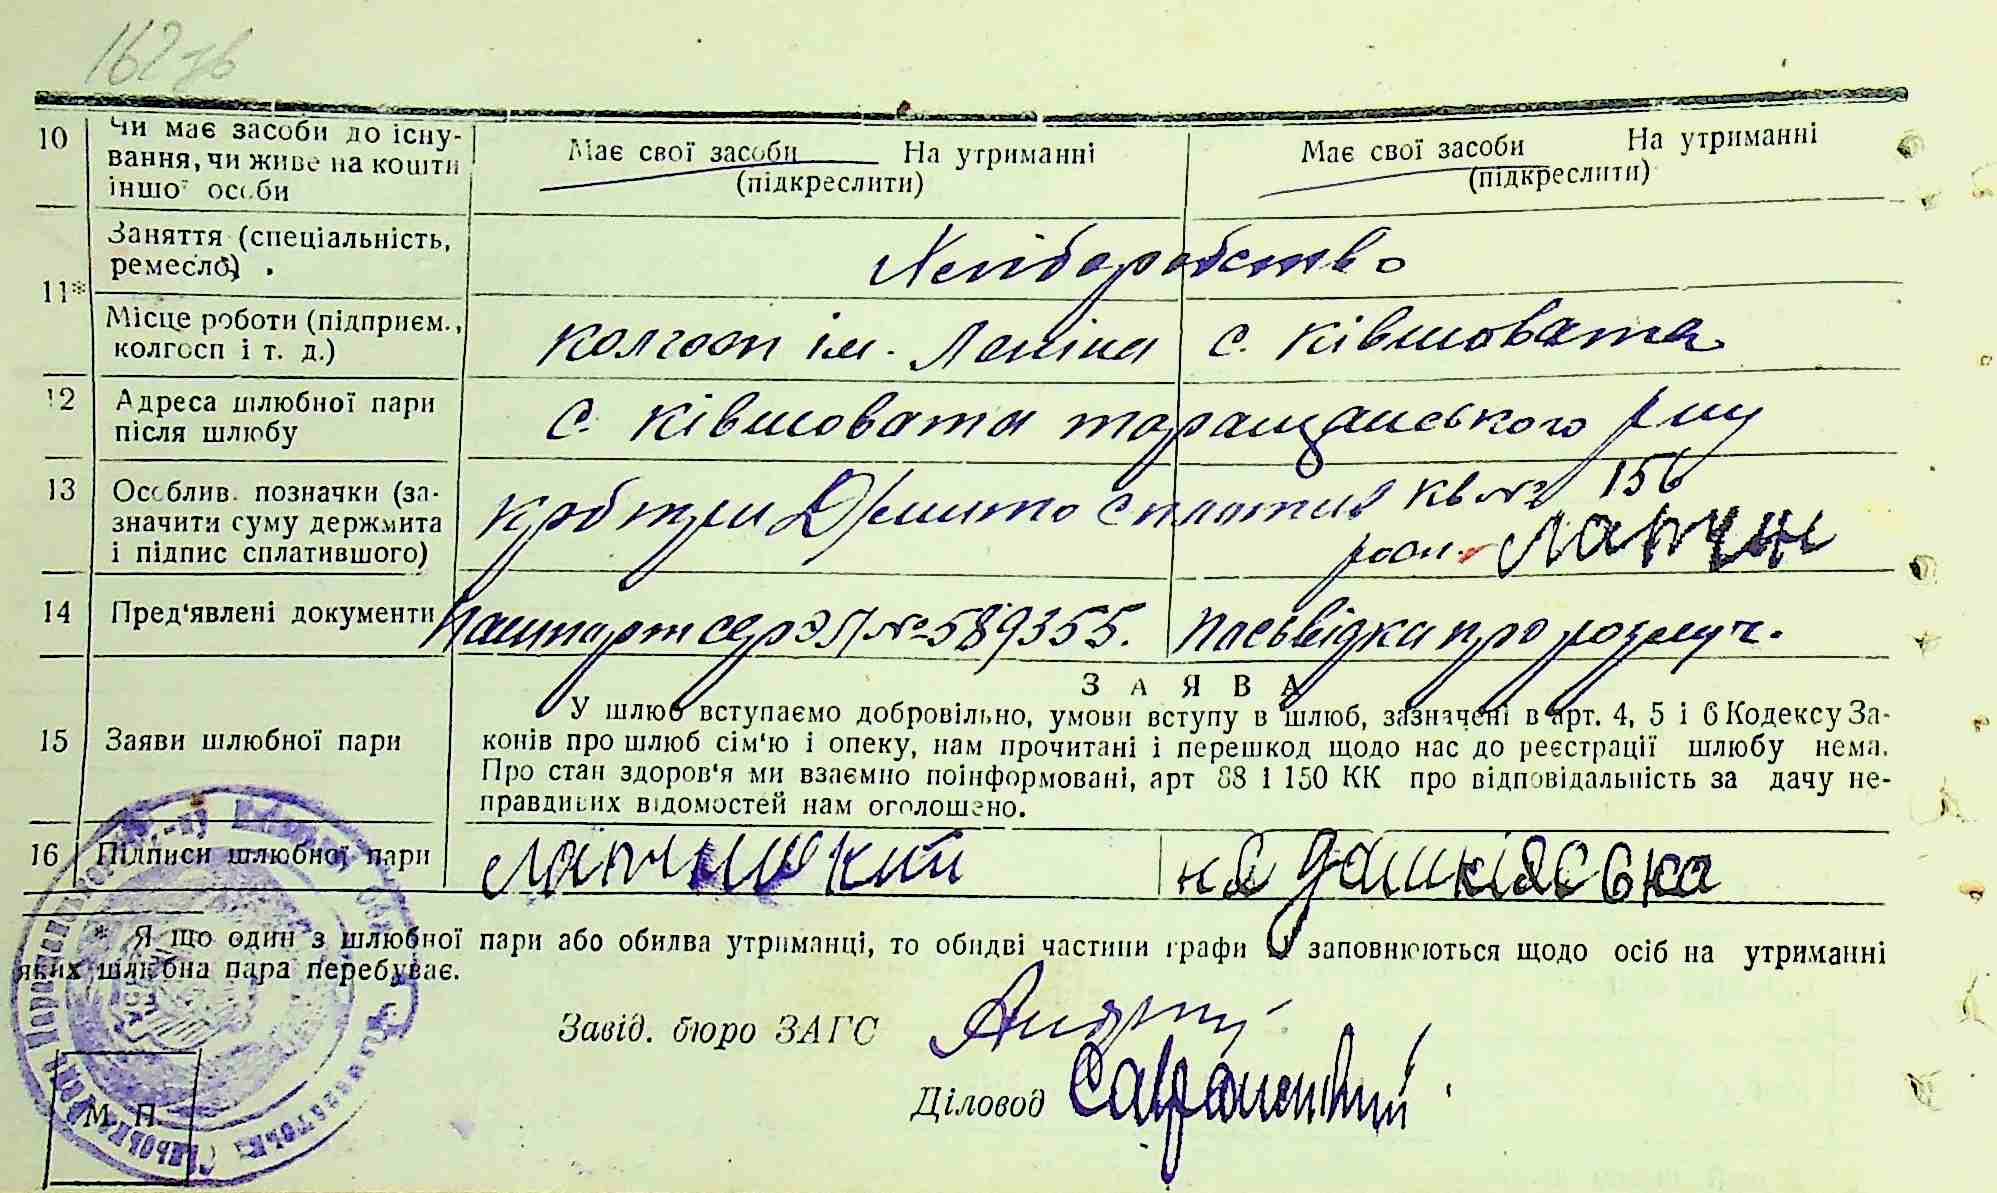 162 зв
10 Чи має засоби до існу-
вання, чи живе на кошти
іншо' особи
Має свої засоби На утриманні
(підкреслити)
Має свої засоби На утриманні
(підкреслити)
11* Заняття (спеціальність,
ремесло)
Хліборобство
Місце роботи (підприєм.,
колгосп і т. д.)
колгосп ім. Леніна с. Ківшовата
12 Адреса шлюбної пари
після шлюбу
с. Ківшовата таращанського р-ну
13 Особлив. позначки (за-
значити суму держмита
і підпис сплатившого)
Д/мито сплатив кв № 156
14 Пред'явлені документи
Пашпорт сер ЭЛ № 589355. Посвідка про розлуч.
15 Заяви шлюбної пари
ЗАЯВА
У шлюб вступаємо добровільно, умови вступу в шлюб, зазначені в арт. 4, 5 і 6 Кодексу За-
конів про шлюб сім'ю і опеку, нам прочитані і перешкод щодо нас до реєстрації шлюбу нема.
Про стан здоров'я ми взаємно поінформовані, арт 88 і 150 КК про відповідальність за дачу не-
правдивих відомостей нам оголошено.
16 Підписи шлюбної пари
* Я що один з шлюбної пари або обидва утриманці, то обидві частини графи заповнюються щодо осіб на утриманні
яких шлюбна пара перебуває.
Завід. бюро ЗАГС
Діловод
М. П.